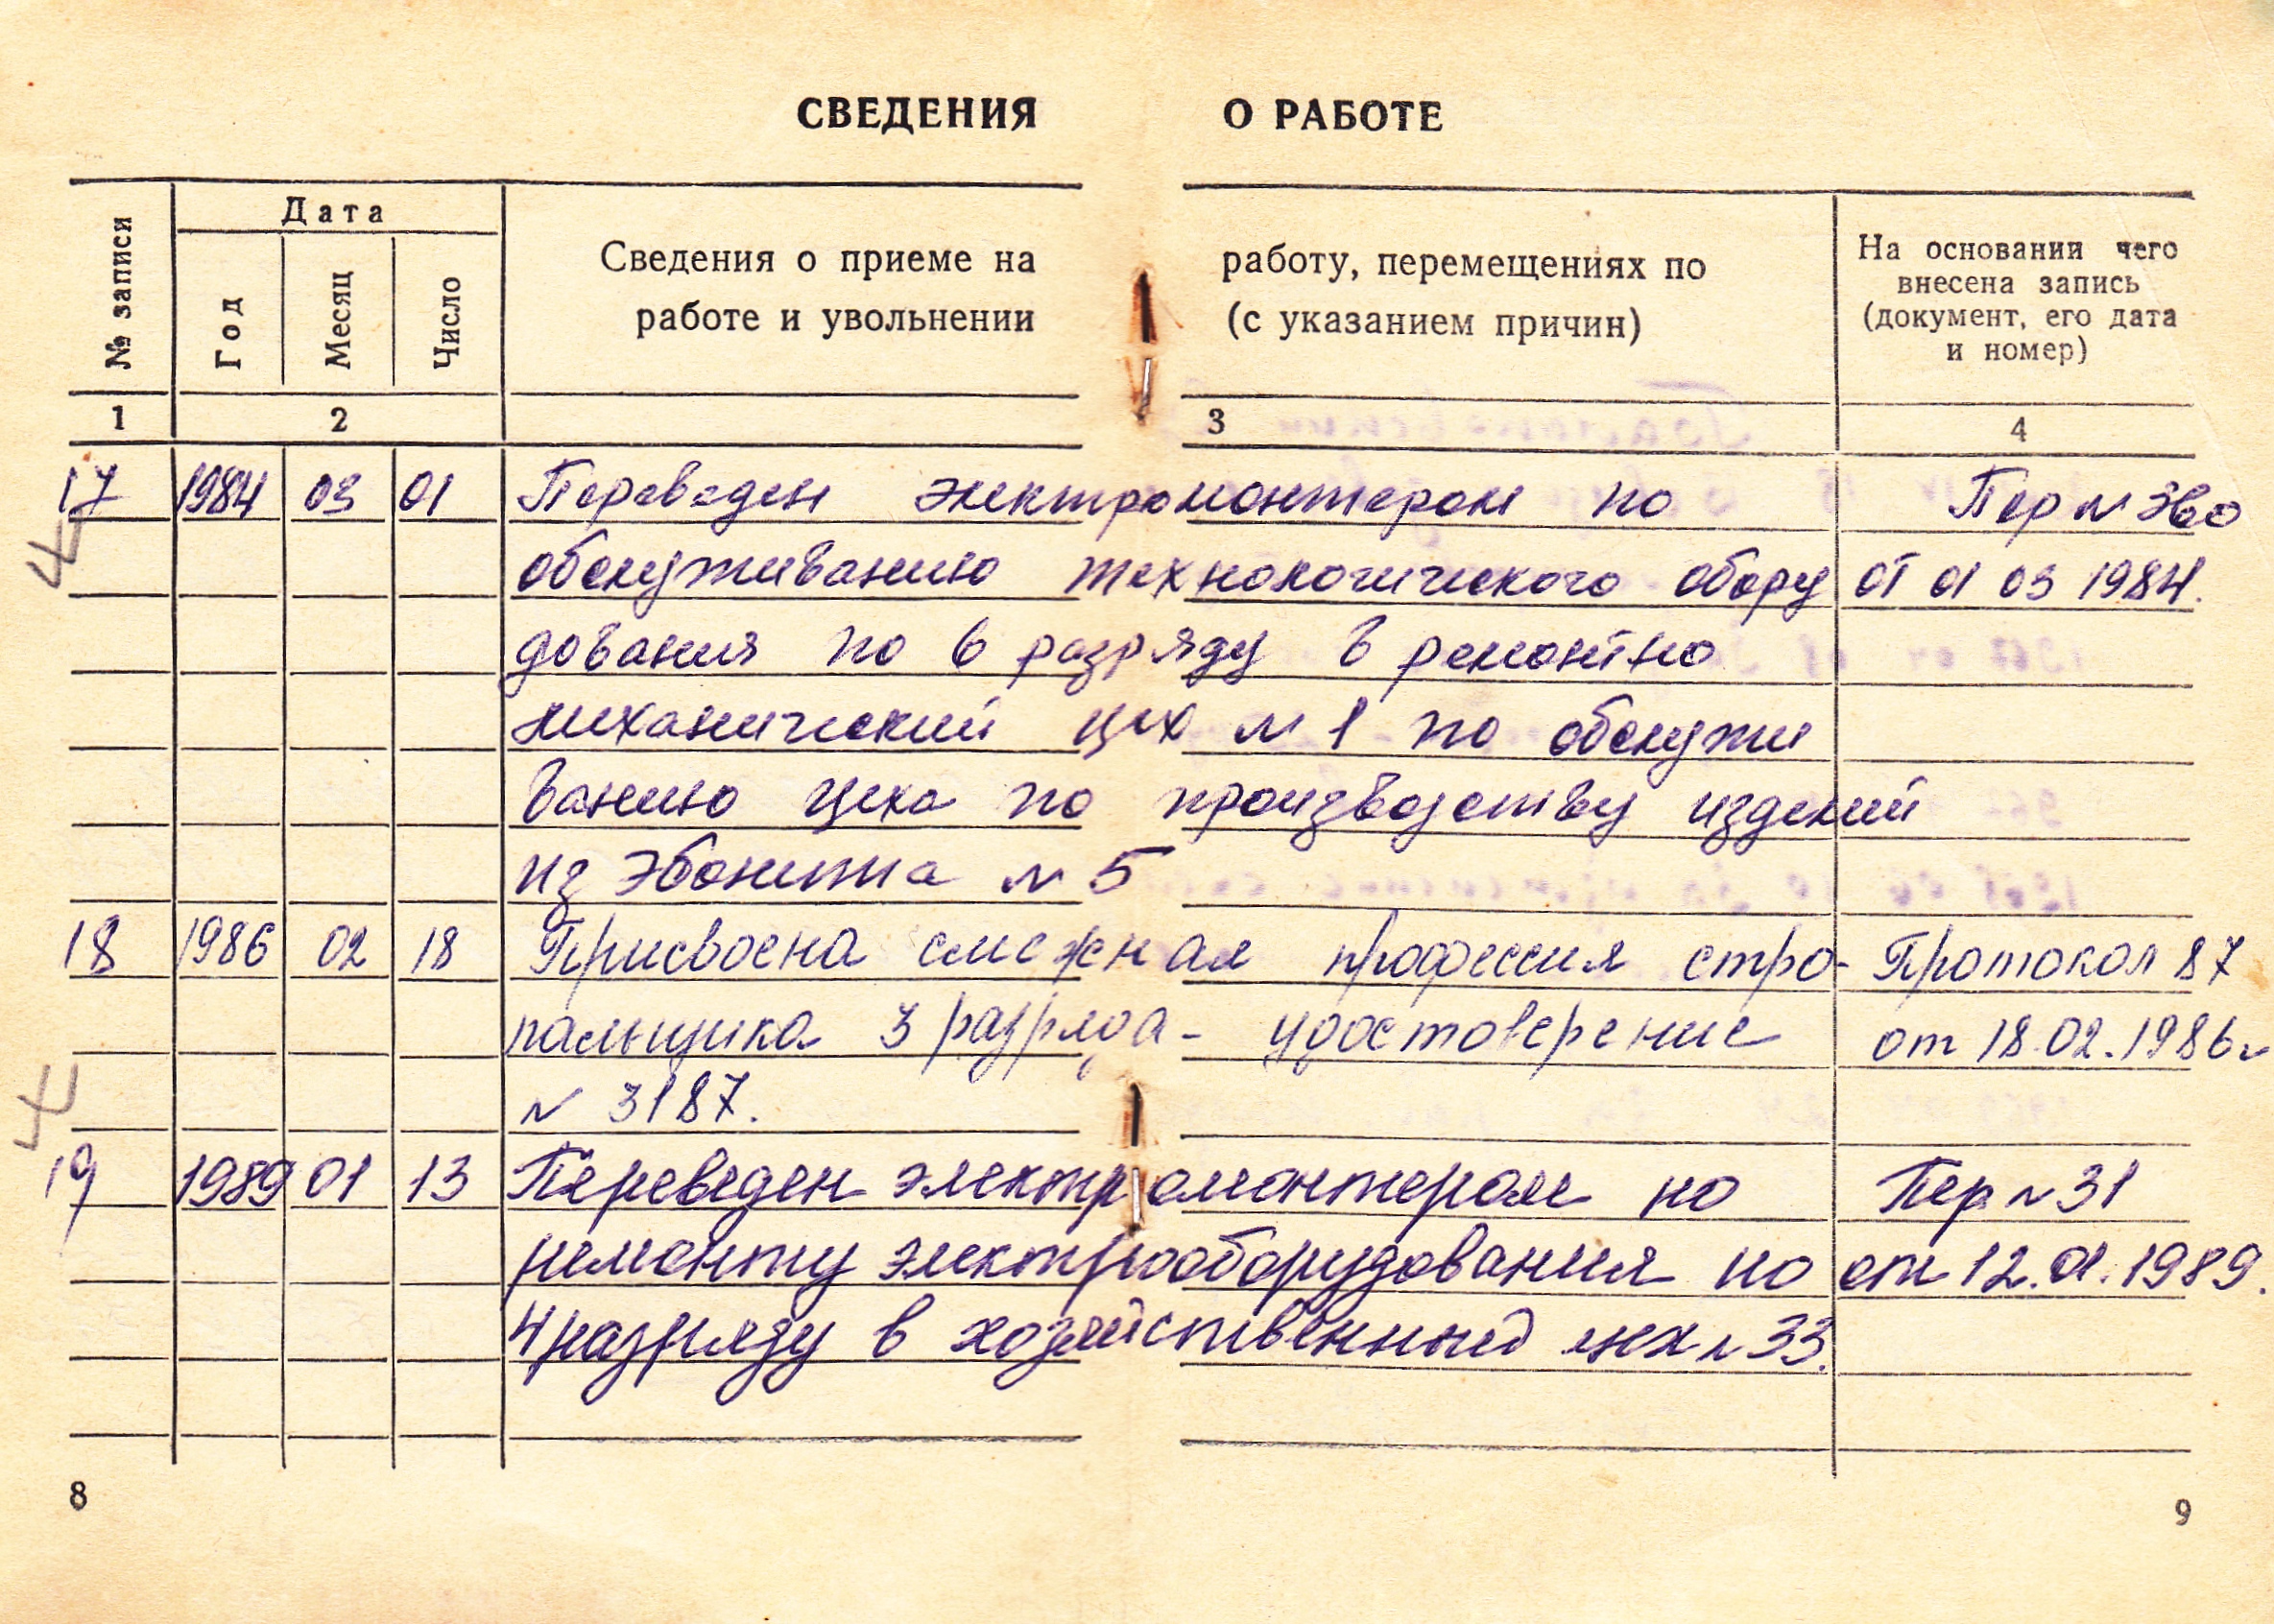 СВЕДЕНИЯ О РАБОТЕ
№ записи
Дата
Год
Месяц
Число
Сведения о приеме на работу, перемещениях по
работе и увольнении (с указанием причин)
На основании чего
внесена запись
(документ, его дата
и номер)
1 2 3 4
17 1984 03 01 Переведен электромонтером по Пер №
обслуживанию технологического обору от 01 03 1984.
дования по 6 разряду в ремонтно
механический цех № 1 по обслужи
ванию цеха по производству изделий
из эбонита № 5
18 1986 02 18 Присвоена смежная профессия стро- Протокол 87
пальщика 3 разряда - удостоверение от 18.02.1986г
№ 3187.
19 1989 01 13 Переведен электромонтером по Пер № 31
ремонту электрооборудования по от 12.01.1989.
4 разряду в хозяйственный цех № 33.
8
9